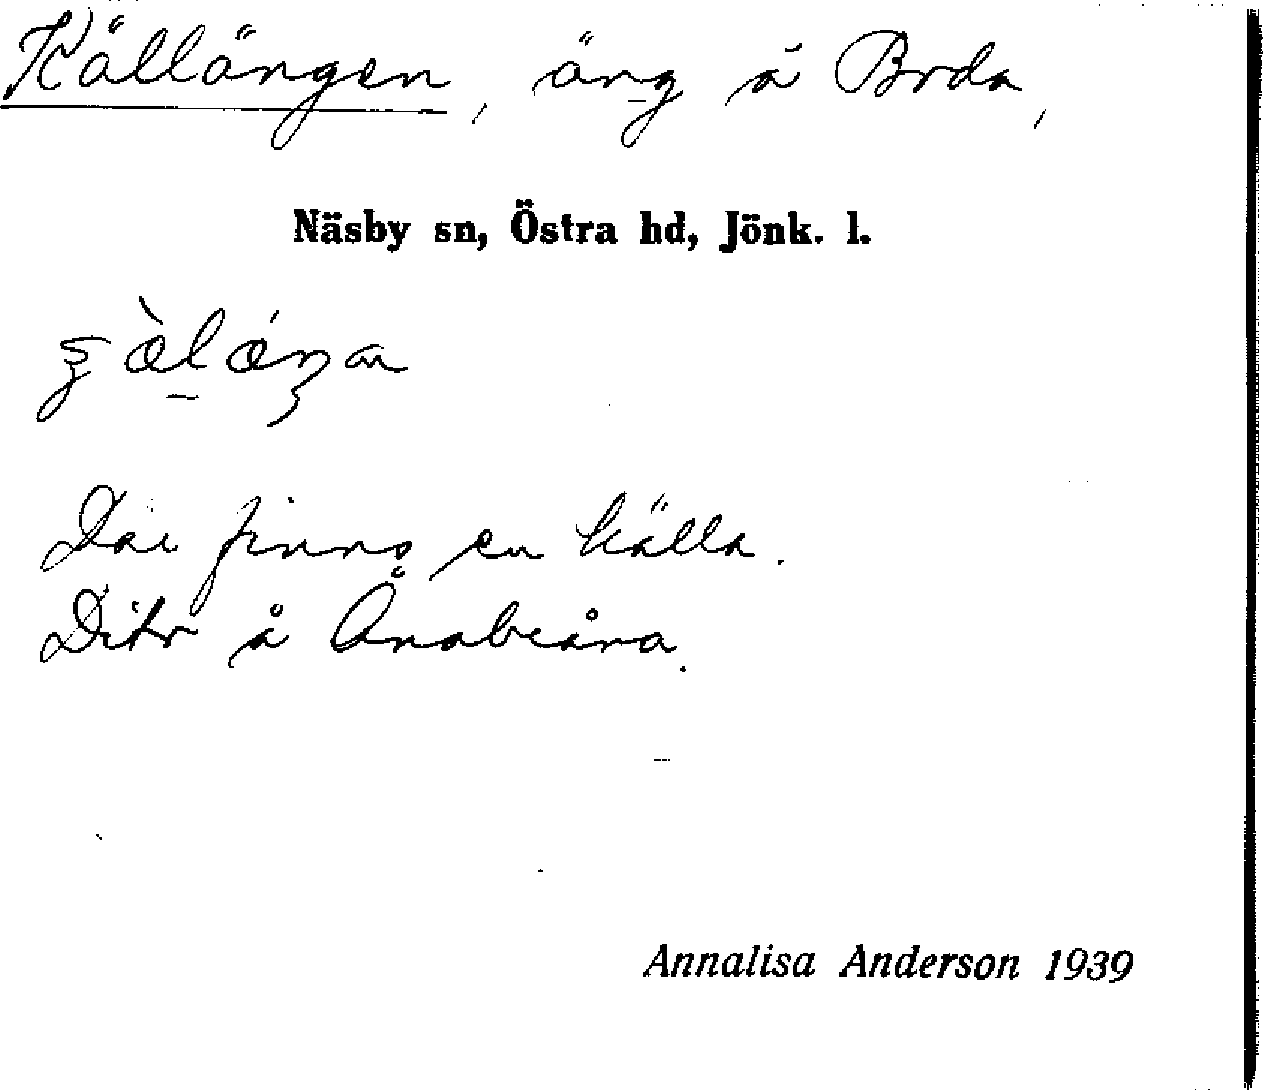 Källängen, äng å Boda,
Näsby sn, Östra hd, Jönk. l.
Där finns en källa.
Dito å
Annalisa Anderson 1939